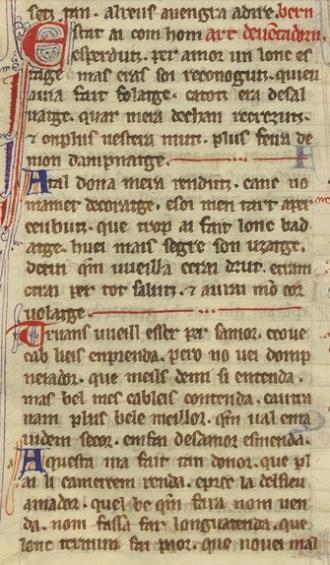 seti fan. alreus auengra adire. bern
Estat ai com hom art deuentadorn.
esperdutz. per amor un lonc es
tatge mas eras soi reconogutz. quieu
auia fait folatge. catotz era desal
uatge. quar mera dechan recrezutz.
& onplus nestera mutz. plus fera de
mon dampnatge.
Atal dona mera rendutz. canc no
mamet decoratge. esoi men tart aper
ceubutz. que trop ai fait lonc bad
atge. huei mais segre son uzatge.
decui qim uueilla cerai drutz. etram
etrai per tot salutz. & aurai mo cor
uolatge.
Truans uueill esser per samor. ecoue
cab lieis enprenda. pero no uei domp
neiador. que meils demi si entenda.
mas bel mes cableis contenda. cautra
nam plus bele meillor. qim ual ema
iudem secor. emfai desamor esmenda.
Aquesta ma fait tan donor. que pl
ai li camercem renda. eprec la delseu
amador. quel be qim fara nom uen
da. nom fassa far longuatenda. que
lonc termini fai paor. que nouei mal